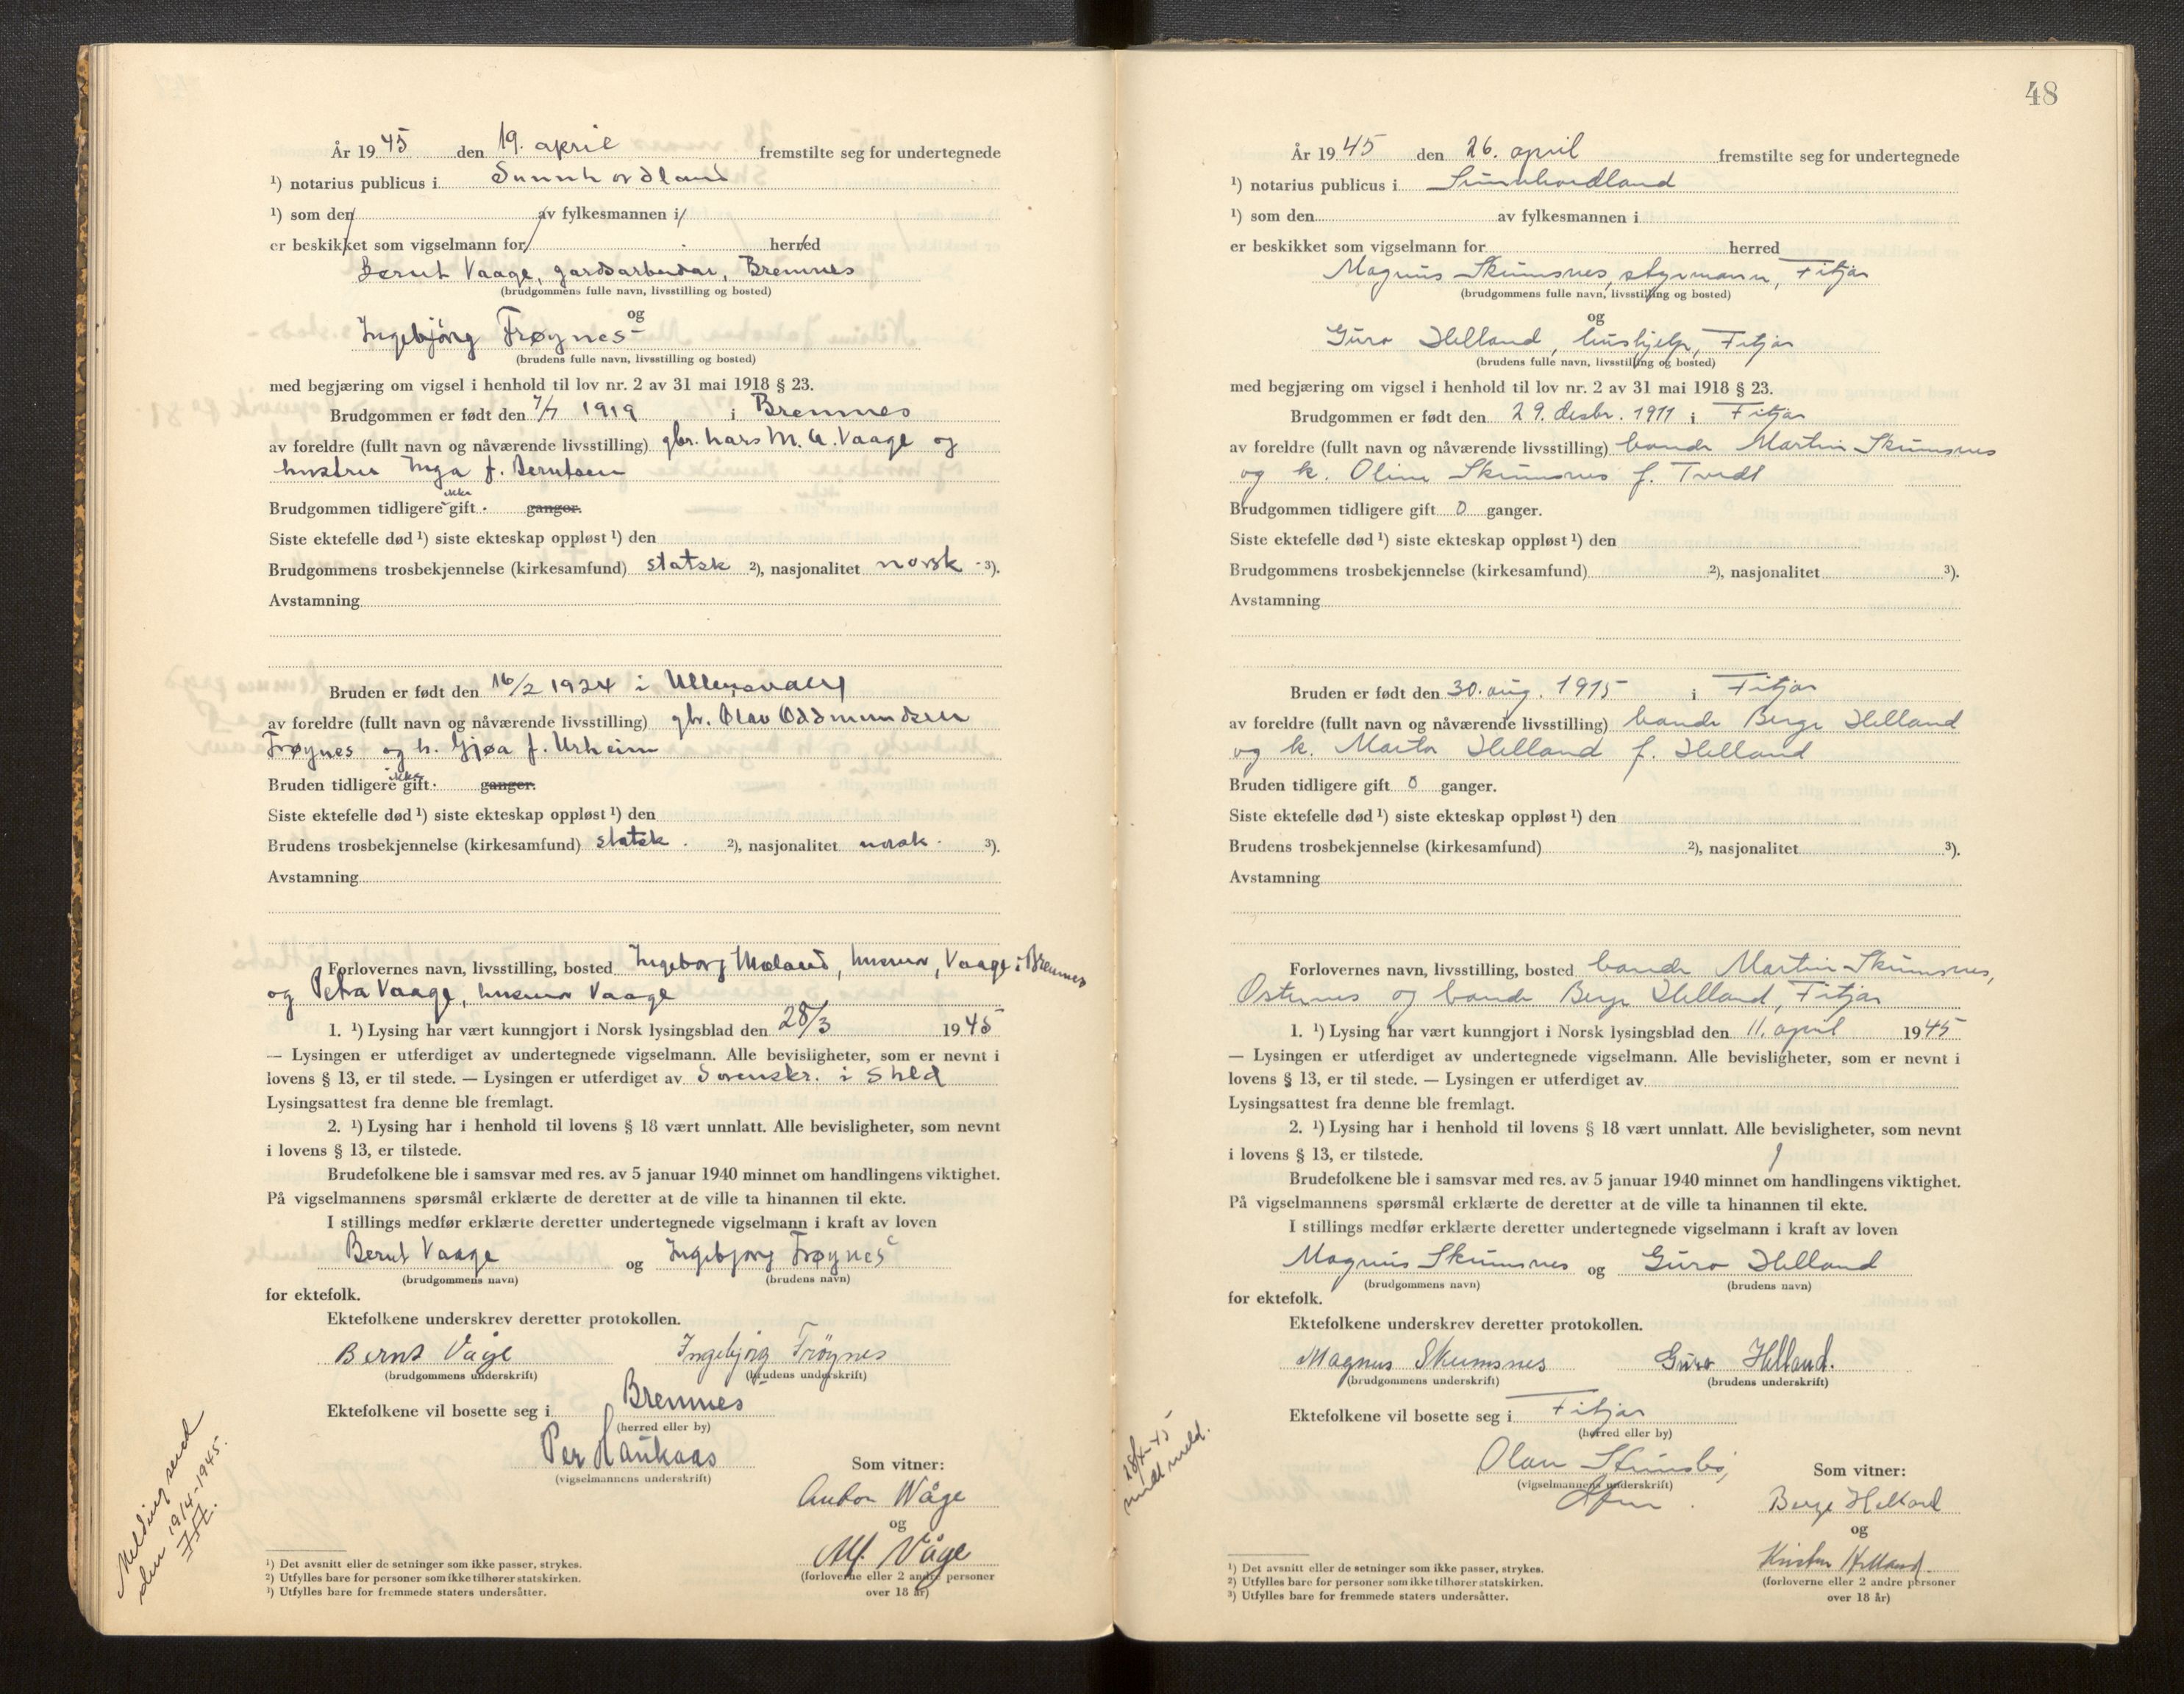 År 1945 den 19. april fremstilte seg for undertegnede
¹) notarius publicus i Sunnhordland
¹) som den av fylkesmannen i
er beskikket som vigselmann for herred
Bernt Vaage, gardsarbeidar, Bremnes
(brudgommens fulle navn, livsstilling og bosted)
og
Ingebjörg Frøynes
(brudens fulle navn, livsstilling og bosted)
med begjæring om vigsel i henhold til lov nr. 2 av 31 mai 1918 § 23.
Brudgommen er født den 7/7 1919 i Bremnes
av foreldre (fullt navn og nåværende livsstilling) gbr. Lars M. A. Vaage og
hustru Inga f. Berntsen
Brudgommen tidligere ikke gift. ganger.
Siste ektefelle død ¹) siste ekteskap oppløst ¹) den
Brudgommens trosbekjennelse (kirkesamfund) statsk ²), nasjonalitet norsk - ³).
Avstamning
Bruden er født den 16/2 1924 i Ullensvang
av foreldre (fullt navn og nåværende livsstilling) gbr. Olav Oddmundsen
Frøynes og h. Gjøa f. Urheim
Bruden tidligere ikke gift. ganger.
Siste ektefelle død ¹) siste ekteskap oppløst ¹) den
Brudens trosbekjennelse (kirkesamfund) statsk. ²), nasjonalitet norsk. ³).
Avstamning
Forlovernes navn, livsstilling, bosted Ingeborg Mæland, husmor, Vaage i Bremnes
og Petra Vaage, husmor Vaage
1. ¹) Lysing har vært kunngjort i Norsk lysingsblad den 28/3 1945
— Lysingen er utferdiget av undertegnede vigselmann. Alle bevisligheter, som er nevnt i
lovens § 13, er til stede. — Lysingen er utferdiget av Sorenskr. i Shld
Lysingsattest fra denne ble fremlagt.
2. ¹) Lysing har i henhold til lovens § 18 vært unnlatt. Alle bevisligheter, som nevnt
i lovens § 13, er tilstede.
Brudefolkene ble i samsvar med res. av 5 januar 1940 minnet om handlingens viktighet.
På vigselmannens spørsmål erklærte de deretter at de ville ta hinannen til ekte.
I stillings medfør erklærte deretter undertegnede vigselmann i kraft av loven
Bernt Vaage og Ingebjorg Frøynes
(brudgommens navn) (brudens navn)
for ektefolk.
Ektefolkene underskrev deretter protokollen.
Bernt Våge Ingebjörg Fröynes
(brudgommens underskrift) (brudens underskrift)
Ektefolkene vil bosette seg i Bremnes
(herred eller by)
Per Haukaas
(vigselmannens underskrift)
Som vitner:
Anton Våge
og
Alf Våge
(forloverne eller 2 andre personer
over 18 år)
Melding send
den 19/4-1945.
¹) Det avsnitt eller de setninger som ikke passer, strykes.
²) Utfylles bare for personer som ikke tilhører statskirken.
³) Utfylles bare for fremmede staters undersåtter.
48
År 1945 den 26. april fremstilte seg for undertegnede
¹) notarius publicus i Sunnhordland
¹) som den av fylkesmannen i
er beskikket som vigselmann for herred
Magnus Skumsnes, styrmann, Fitjar
(brudgommens fulle navn, livsstilling og bosted)
og
Guro Helland, hushjelp, Fitjar
(brudens fulle navn, livsstilling og bosted)
med begjæring om vigsel i henhold til lov nr. 2 av 31 mai 1918 § 23.
Brudgommen er født den 29. desbr. 1911 i Fitjar
av foreldre (fullt navn og nåværende livsstilling) bonde Martin Skumsnes
og k. Oline Skumsnes f. Tvedt
Brudgommen tidligere gift 0 ganger.
Siste ektefelle død ¹) siste ekteskap oppløst ¹) den
Brudgommens trosbekjennelse (kirkesamfund) ²), nasjonalitet ³).
Avstamning
Bruden er født den 30. aug. 1915 i Fitjar
av foreldre (fullt navn og nåværende livsstilling) bonde Berge Helland
og k. Marta Helland f. Helland
Bruden tidligere gift 0 ganger.
Siste ektefelle død ¹) siste ekteskap oppløst ¹) den
Brudens trosbekjennelse (kirkesamfund) ²), nasjonalitet ³).
Avstamning
Forlovernes navn, livsstilling, bosted bonde Martin Skumsnes,
Osternes og bonde Berge Helland, Fitjar
1. ¹) Lysing har vært kunngjort i Norsk lysingsblad den 11. april 1945
— Lysingen er utferdiget av undertegnede vigselmann. Alle bevisligheter, som er nevnt i
lovens § 13, er til stede. — Lysingen er utferdiget av
Lysingsattest fra denne ble fremlagt.
2. ¹) Lysing har i henhold til lovens § 18 vært unnlatt. Alle bevisligheter, som nevnt
i lovens § 13, er tilstede.
Brudefolkene ble i samsvar med res. av 5 januar 1940 minnet om handlingens viktighet.
På vigselmannens spørsmål erklærte de deretter at de ville ta hinannen til ekte.
I stillings medfør erklærte deretter undertegnede vigselmann i kraft av loven
Magnus Skumsnes og Guro Helland
(brudgommens navn) (brudens navn)
for ektefolk.
Ektefolkene underskrev deretter protokollen.
Magnus Skumsnes Guro Helland.
(brudgommens underskrift) (brudens underskrift)
Ektefolkene vil bosette seg i Fitjar
(herred eller by)
Olav
(vigselmannens underskrift)
Som vitner:
Berge Helland
og
Kristen Helland
(forloverne eller 2 andre personer
over 18 år)
meld.
¹) Det avsnitt eller de setninger som ikke passer, strykes.
²) Utfylles bare for personer som ikke tilhører statskirken.
³) Utfylles bare for fremmede staters undersåtter.